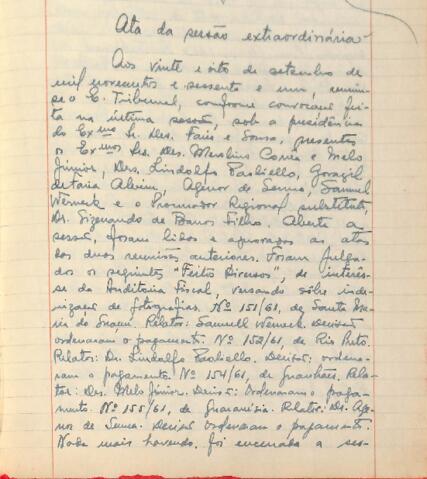 Ata da sessão extraordinária
Aos vinte e oito de setembro de
mil novecentos e sessenta e um, reuniu-
se o E. Tribunal, conforme convocação fei-
ta na última sessão, sob a presidência
do Exmo Sr. Des. Faria e Sousa, presentes
os Exmos Srs. Des. Merolino Corrêa e Melo
Júnior, Drs. Lindolfo Paoliello, Gorazil
de Faria Alvim, Agenor de Senna, Samuel
Werneck e o Procurador Regional substituto,
Dr. Sizenando de Barros Filho. Aberta a
sessão, foram lidas e aprovadas as atas
das duas reuniões anteriores. Foram julga-
dos os seguintes "Feitos Diversos", de interês-
se da Auditoria Fiscal, versando sôbre inde-
nização de fotografias. Nº 151/61, de Santa Ma-
ria do Suaçuí. Relator: Samuel Werneck. Decisão:
ordenaram o pagamento. Nº 152/61, de Rio Preto.
Relator: Dr. Lindolfo Paoliello. Decisão: ordena-
ram o pagamento. Nº 154/61, de Guanhães. Rela-
tor: Des. Melo Júnior. Decisão: Ordenaram o paga-
mento. Nº 155/61, de Guaranésia. Relator: Dr. Age-
nor de Senna. Decisão: Ordenaram o pagamento.
Nada mais havendo, foi encerrada a ses-